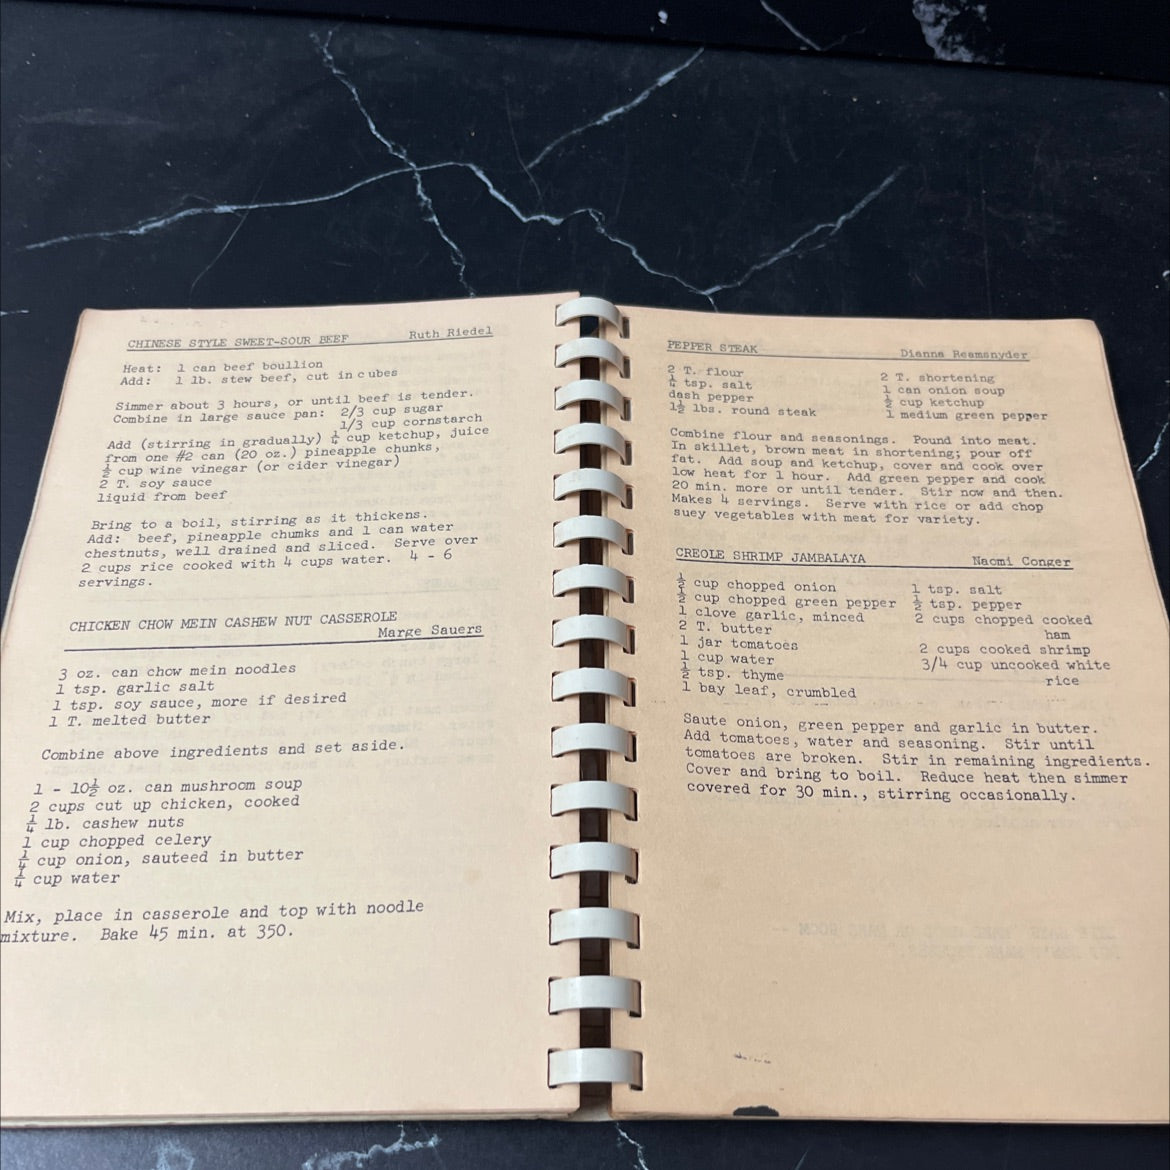 CHINESE STYLE SWEET-SOUR BEEF Ruth Riedel
Heat: 1 can beef boullion
Add: 1 lb. stew beef, cut in cubes
Simmer about 3 hours, or until beef is tender.
Combine in large sauce pan: 2/3 cup sugar
1/3 cup cornstarch
Add (stirring in gradually) ¼ cup ketchup, juice
from one #2 can (20 oz.) pineapple chunks,
½ cup wine vinegar (or cider vinegar)
2 T. soy sauce
liquid from beef
Bring to a boil, stirring as it thickens.
Add: beef, pineapple chumks and 1 can water
chestnuts, well drained and sliced. Serve over
2 cups rice cooked with 4 cups water. 4 - 6
servings.
CHICKEN CHOW MEIN CASHEW NUT CASSEROLE
Marge Sauers
3 oz. can chow mein noodles
1 tsp. garlic salt
1 tsp. soy sauce, more if desired
1 T. melted butter
Combine above ingredients and set aside.
1 - 10½ oz. can mushroom soup
2 cups cut up chicken, cooked
¼ lb. cashew nuts
1 cup chopped celery
¼ cup onion, sauteed in butter
¼ cup water
Mix, place in casserole and top with noodle
mixture. Bake 45 min. at 350.
PEPPER STEAK Dianna Reamsnyder
2 T. flour 2 T. shortening
¼ tsp. salt 1 can onion soup
dash pepper ½ cup ketchup
1½ lbs. round steak 1 medium green pepper
Combine flour and seasonings. Pound into meat.
In skillet, brown meat in shortening; pour off
fat. Add soup and ketchup, cover and cook over
low heat for 1 hour. Add green pepper and cook
20 min. more or until tender. Stir now and then.
Makes 4 servings. Serve with rice or add chop
suey vegetables with meat for variety.
CREOLE SHRIMP JAMBALAYA Naomi Conger
½ cup chopped onion 1 tsp. salt
½ cup chopped green pepper ½ tsp. pepper
1 clove garlic, minced 2 cups chopped cooked
2 T. butter ham
1 jar tomatoes 2 cups cooked shrimp
1 cup water 3/4 cup uncooked white
½ tsp. thyme rice
1 bay leaf, crumbled
Saute onion, green pepper and garlic in butter.
Add tomatoes, water and seasoning. Stir until
tomatoes are broken. Stir in remaining ingredients.
Cover and bring to boil. Reduce heat then simmer
covered for 30 min., stirring occasionally.